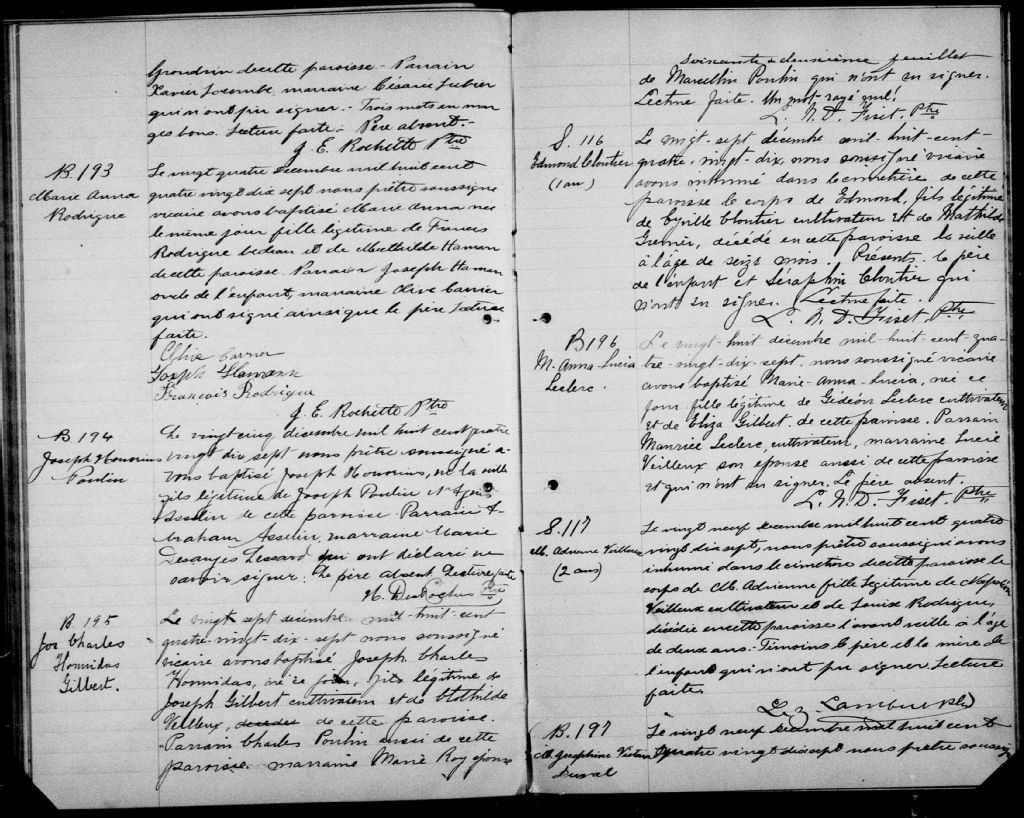 Grondin de cette paroisse - Parrain
Xavier Lacombe, marraine Césarie Lubier
qui n'ont pu signer. - Trois mots en mar
ges bons. Lecture faite. - Père absent. -
J. E. Rochette Ptre
B. 193
Marie Anna
Rodrigue
Le vingt quatre decembre mil huit cent
quatre vingt dix sept nous prêtre soussigné
vicaire avons baptisé Marie Anna née
le même jour fille légitime de Francis
Rodrigue bedeau et de Mathilde Haman
de cette paroisse. Parrain Joseph Haman
oncle de l'enfant, marraine Olive Carrier
qui ont signé ainsi que le père lecture
faite.
Olive Carrier
Joseph Hamann
François Rodrigue
J. E. Rochette Ptre
B 194
Joseph Honorius
Poulin
Le vingt cinq décembre mil huit cent quatre
vingt dix sept nous prêtre soussigné a-
vons baptisé Joseph Honorius, né la veille
fils légitime de Joseph Poulin et Agnès
Asselin de cette paroisse. Parrain A-
braham Asselin, marraine Marie
Desanges Lessard qui ont déclaré ne
savoir signer. Le père absent. Lecture faite
H. DesRoches Ptre
B. 195
Jos Charles
Hormidas
Gilbert.
Le vingt sept décembre mil-huit-cent
quatre-vingt-dix-sept nous soussigné
vicaire avons baptisé Joseph Charles
Hormidas, né ce jour, fils légitime de
Joseph Gilbert cultivateur et de Clothilde
Veilleux, de cette paroisse.
Parrain Charles Poulin aussi de cette
paroisse. marraine Marie Roy épouse
Soixante & deuxième feuillet
de Marcellin Poulin qui n'ont su signer.
Lecture faite. Un mot rayé nul!
L. N. D. Fiset, Ptre
S. 116
Edmond Cloutier
(1 an)
Le vingt-sept décembre mil-huit-cent-
quatre-vingt-dix, nous soussigné vicaire
avons inhumé dans le cimetière de cette
paroisse le corps de Edmond, fils légitime
de Cyrille Cloutier cultivateur et de Mathilde
Grenier, décédé en cette paroisse la veille
à l'âge de seize mois. Présents. le père
de l'enfant et Séraphin Cloutier qui
n'ont su signer. Lecture faite.
L. N. D. Fiset, Ptre
B 196
M. Anna-Lucia
Leclerc.
Le vingt-huit décembre mil-huit-cent-qua-
tre-vingt-dix-sept, nous soussigné vicaire
avons baptisé Marie-Anna-Lucia, née ce
jour fille légitime de Gédéon Leclerc cultivateur
et de Eliza Gilbert. de cette paroisse. Parrain
Maurice Leclerc, cultivateur, marraine Lucie
Veilleux son épouse aussi de cette paroisse
et qui n'ont su signer. Le père absent.
L. N. D. Fiset Ptre
S. 117
M. Adrienne Veilleux
(2 ans)
Le vingt neuf decembre mil huit cent quatre
vingt dix sept, nous prêtre soussigné avons
inhumé dans le cimetière de cette paroisse le
corps de M. Adrienne fille legitime de Napoléon
Veilleux cultivateur et de Louise Rodrigue,
décédée en cette paroisse l'avant veille à l'âge
de deux ans. Témoins le père et la mère de
l'enfant qui n'ont pu signer. Lecture
faite.
L. Z. Lambert Ptre
B. 197
M. Josephine
Duval
Le vingt neuf decembre mil huit cent
quatre vingt dix sept nous pretre soussigné